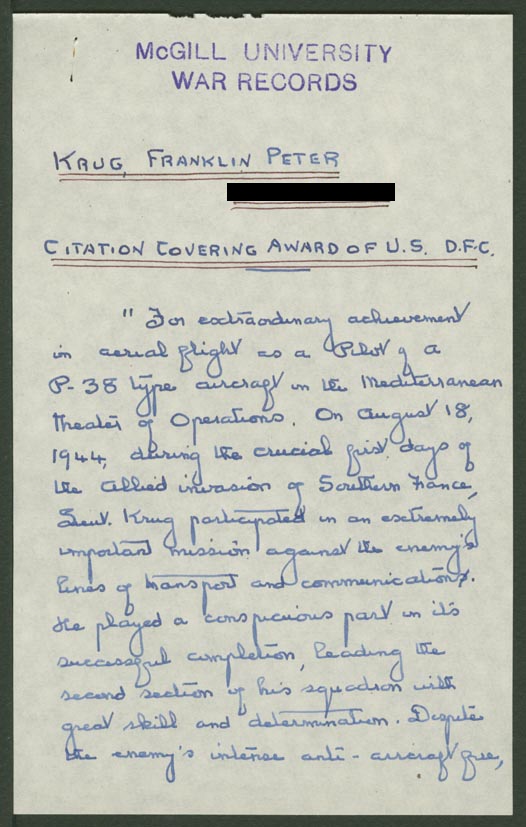 McGILL UNIVERSITY
WAR RECORDS
KRUG, FRANKLIN PETER
CITATION COVERING AWARD OF U.S. D.F.C.
" For extraordinary achievement
in aerial flight as a Pilot of a
P-38 type aircraft in the Mediterranean
Theater of Operations. On August 18,
1944, during the crucial first days of
the Allied invasion of Southern France,
Lieut. Krug participated in an extremely
important mission against the enemy's
lines of transport and communications.
He played a conspicuous part in its
successful completion, leading the
second section of his squadron with
great skill and determination. Despite
the enemy's intense anti-aircraft fire,